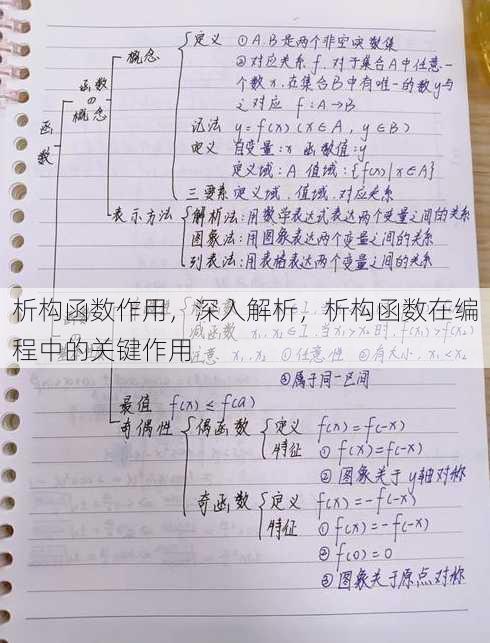 定义 ①A.B是两个非空实数集
②对应关系f.对于集合A中任意一
个数x.在集合B中有唯一的数y与
之对应 f:A→B
概念
函数
的
概念
函
数
记法 y=f(x)(x∈A,y∈B)
定义 自变量:x 函数值:y
定义域:A 值域:{f(x)|x∈A}
三要素 定义域.值域.对应关系
表示方法 解析法:用数学表达式表达两个变量之间的关系
图象法:用图象表达两个变量之间的关系
列表法:用表格表达两个变量之间的关系
析构函数作用，深入解析，析构函数在编
程中的关键作用
减函数
x₁.x₂ ①任意性 ②有大小.x₁<x₂
③属于同一区间
最值 f(x)≤f(a)
奇偶性 偶函数 定义 f(x)=f(-x)
特征 ①f(x)=f(-x)
②图象关于y轴对称
奇函数 定义 f(x)=-f(-x)
特征 ①f(x)=-f(-x)
②f(0)=0
③图象关于原点对称